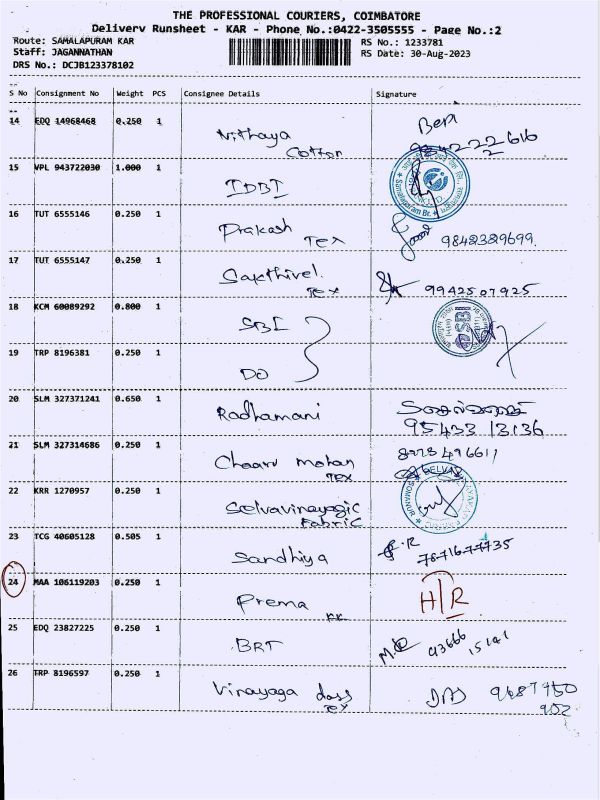 THE PROFESSIONAL COURIERS, COIMBATORE
Delivery Runsheet - KAR - Phone No.:0422-3505555 - Page No.:2
Route: SAMALAPURAM KAR
RS No.: 1233781
Staff: JAGANNATHAN
RS Date: 30-Aug-2023
DRS No.: DCJB123378102
S No Consignment No Weight PCS Consignee Details Signature
14 EDQ 14968468 0.250 1
Nithaya
Cotton
15 VPL 943722030 1.000 1
IDBI
Samalapuram Br.
16 TUT 6555146 0.250 1
Prakash
Tex
9842329699.
17 TUT 6555147 0.250 1
Sakthivel.
Tex
9942507925
18 KCM 60089292 0.800 1
SBI
SBI
19 TRP 8196381 0.250 1
DO
20 SLM 327371241 0.650 1
Radhamani
95433 13136
21 SLM 327314686 0.250 1
Chaaru mohan
Tex
22 KRR 1270957 0.250 1
Selvavinayagic
Fabric
SOMANUR
23 TCG 40605128 0.505 1
Sandhiya
24 MAA 106119203 0.250 1
Prema
H/R
25 EDQ 23827225 0.250 1
BRT
43666
15141
26 TRP 8196597 0.250 1
Vinayaga dass
Tex
DAS 9687950
902